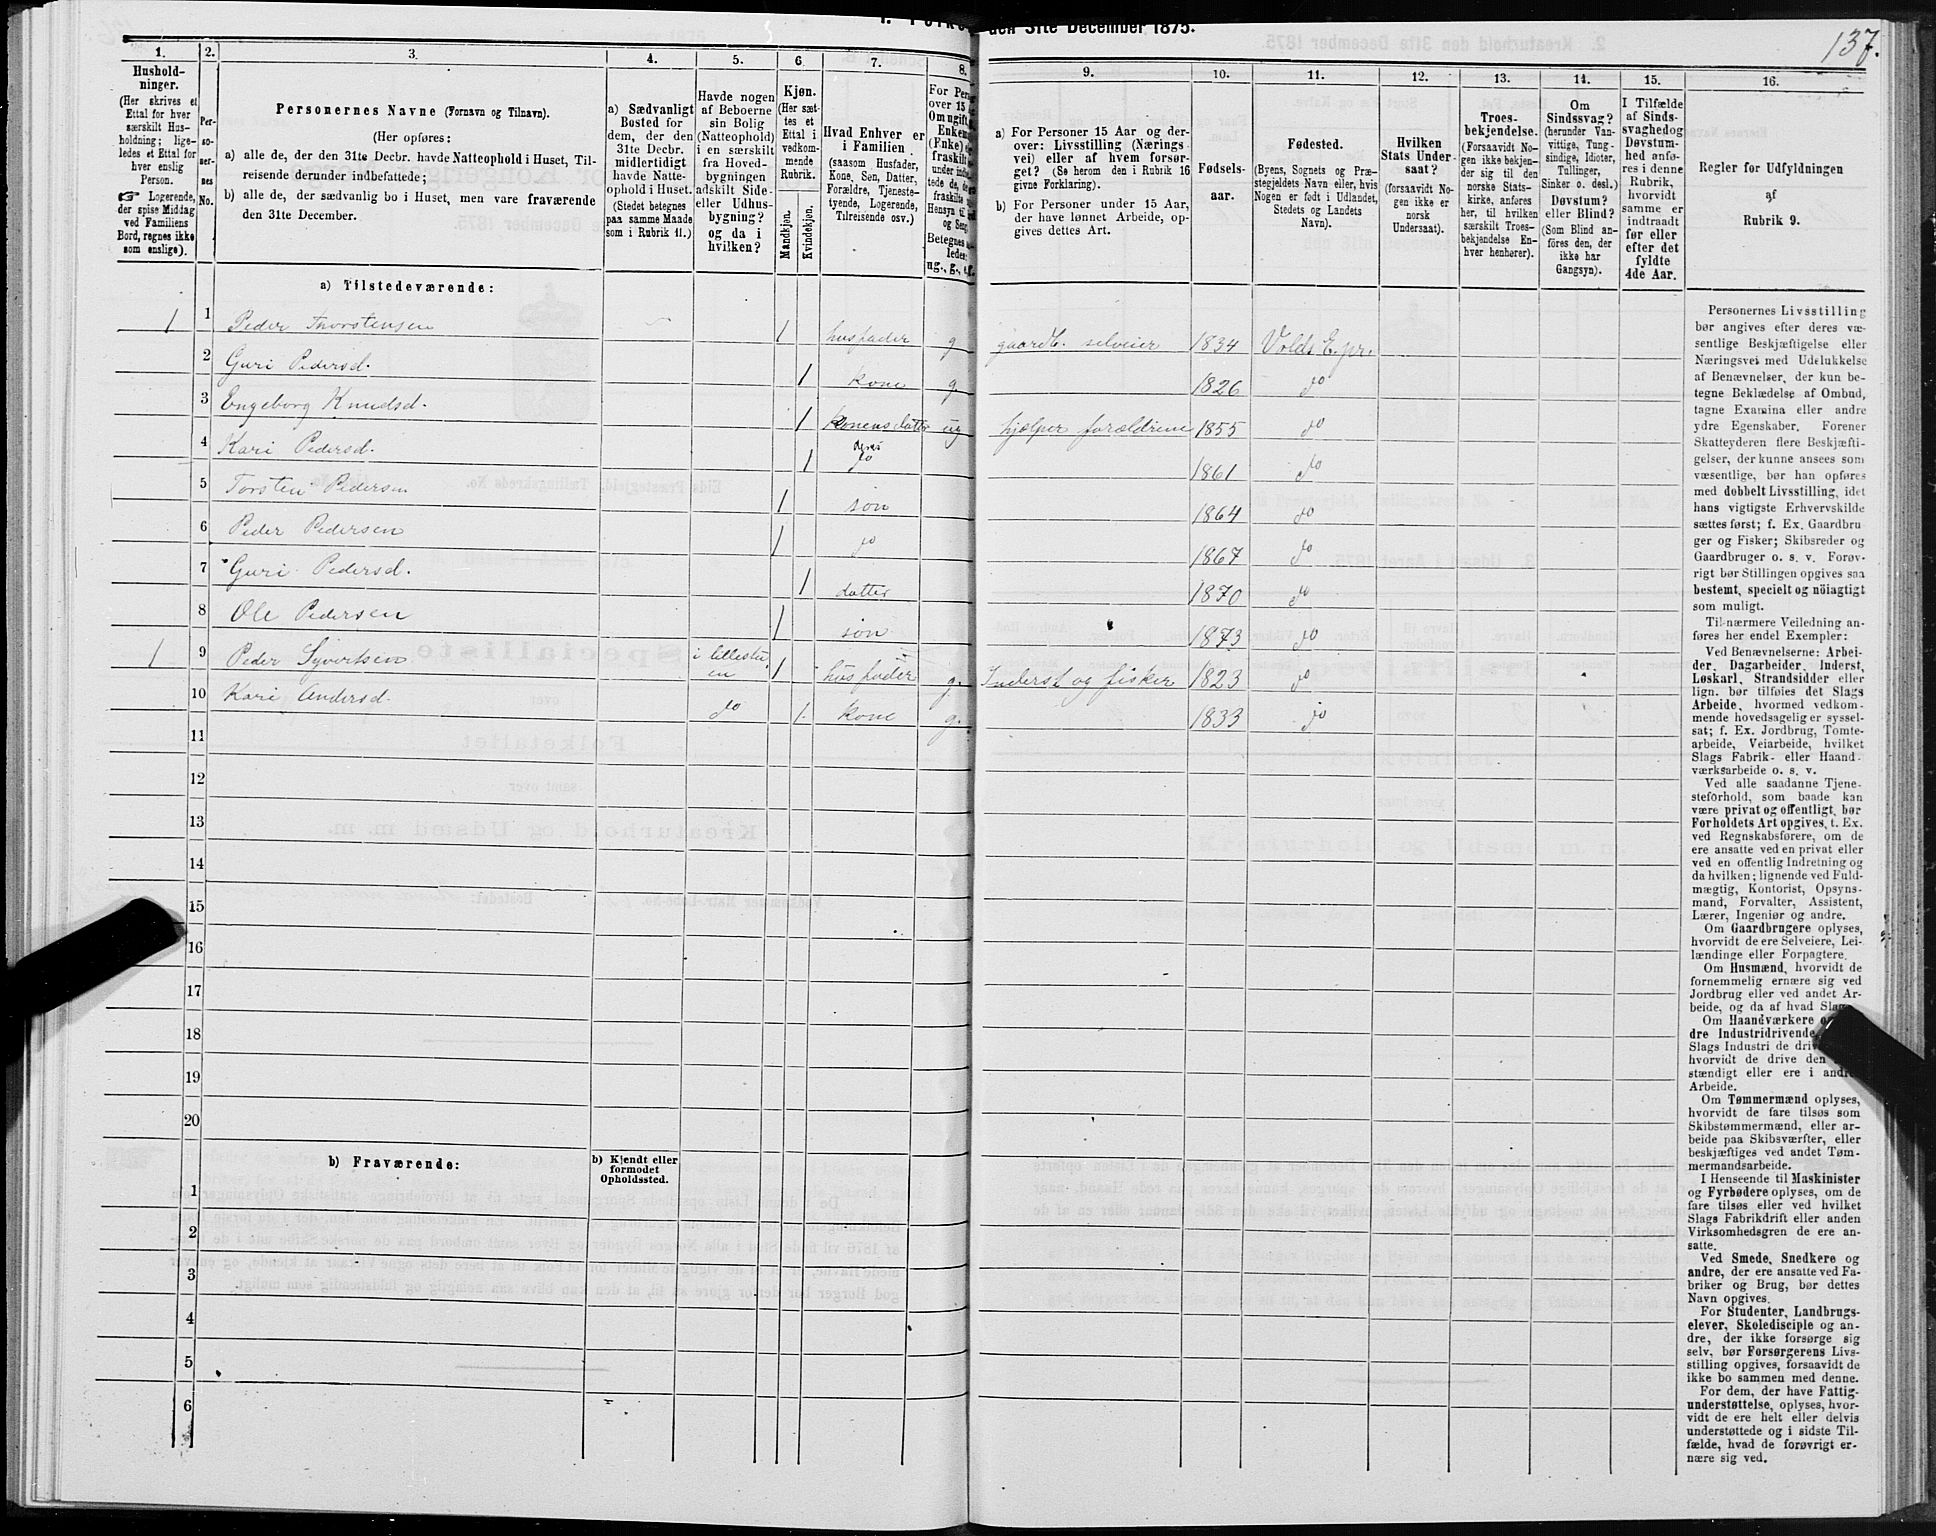 den 31te December 1875.
137.
1.
2.
3.
4.
5.
6
7.
8.
9.
10.
11.
12.
13.
14.
15.
16.
Hushold-
ninger.
(Her skrives et
Ettal for hver
særskilt Hus-
holdning; lige-
ledes et Ettal for
hver enslig
Person.
☞ Logerende,
der spise Middag
ved Familiens
Bord, regnes ikke
som enslige).
Per-
so-
ner-
nes
No.
Personernes Navne (Fornavn og Tilnavn).
(Her opføres:
a) alle de, der den 31te Decbr. havde Natteophold i Huset, Til-
reisende derunder indbefattede;
b) alle de, der sædvanlig bo i Huset, men vare fraværende
den 31te December.
a) Sædvanligt
Bosted for
dem, der den
31te Decbr.
midlertidigt
havde Natte-
ophold i Huset.
(Stedet betegnes
paa samme Maade
som i Rubrik 11.)
Havde nogen
af Beboerne
sin Bolig
(Natteophold)
i en særskilt
fra Hoved-
bygningen
adskilt Side-
eller Udhus-
bygning?
og da i
hvilken?
Kjøn.
(Her sæt-
tes et
Ettal i
vedkom-
mende
Rubrik.
Mandkjøn.
Kvindekjøn.
Hvad Enhver er
i Familien
(saasom Husfader,
Kone, Søn, Datter,
Forældre, Tjeneste-
tyende, Logerende,
Tilreisende osv.)
For Per
over 15
Om ugift,
Enkem
(Enke)
fraskilt
ug., g., e
a) For Personer 15 Aar og der-
over: Livsstilling (Nærings
vei) eller af hvem forsør-
get? (Se herom den i Rubrik 16
givne Forklaring).
b) For Personer under 15 Aar,
der have lønnet Arbeide, op-
gives dettes Art.
Fødsels-
aar.
Fødested.
(Byens, Sognets og Præ-
stegjeldets Navn eller, hvis
Nogen er født i Udlandet,
Stedets og Landets
Navn).
Hvilken
Stats Under-
saat?
(forsaavidt No-
gen ikke er
norsk
Undersaat).
Troes-
bekjendelse.
(Forsaavidt No-
gen ikke bekjen-
der sig til den
norske Stats-
kirke, anføres
her, til hvilken
særskilt Troes-
bekjendelse En-
hver henhører).
Om
Sindssvag?
(herunder Van-
vittige, Tung-
sindige, Idioter,
Tullinger,
Sinker o. desl.)
Døvstum?
eller Blind?
(Som Blind an-
føres den, der
ikke har
Gangsyn).
I Tilfælde
af Sinds-
svaghed og
Døvstum-
hed anfø-
res i denne
Rubrik,
hvorvidt
samme er
indtraadt
før eller
efter det
fyldte
4de Aar.
Regler for Udfyldningen
af
Rubrik 9.
a) Tilstedeværende:
1 1 Peder Thorstensen 1 husfader g gaardb. selveier 1834 Volds E. pr.
2 Guri Pedersd. 1 kone g. 1826 do
3 Engeborg Knudsd. 1 konens datter ug hjælper forældrene 1855 do
4 Kari Pedersd. 1 deres do 1861 do
5 Torsten Pedersen 1 søn 1864 do
6 Peder Pedersen 1 do 1867 do
7 Guri Pedersd. 1 datter 1870 do
8 Ole Pedersen 1 søn 1873 do
1 9 Peder Syvertsen i lillestuen 1 husfader g. Inderst og fisker 1823 do
10 Kari Andersd. do 1 kone g. 1833 do
11
12
13
14
15
16
17
18
19
20
b) Fraværende:
b) Kjendt eller
formodet
Opholdssted.
1
2
3
4
5
6
Personernes Livsstilling
bør angives efter deres væ-
sentlige Beskjæftigelse eller
Næringsvei med Udelukkelse
af Benævnelser, der kun be-
tegne Beklædelse af Ombud,
tagne Examina eller andre
ydre Egenskaber. Forener
Skatteyderen flere Beskjæfti-
gelser, der kunne ansees som
væsentlige, bør han opføres
med dobbelt Livsstilling, idet
hans vigtigste Erhvervskilde
sættes først; f. Ex. Gaardbru
ger og Fisker; Skibsreder og
Gaardbruger o. s. v. Forøv-
rigt bør Stillingen opgives saa
bestemt, specielt og nöiagtigt
som muligt.
Til nærmere Veiledning an-
føres her endel Exempler:
Ved Benævnelserne: Arbei-
der, Dagarbeider, Inderst,
Løskarl, Strandsidder eller
lign. bør tilføies det Slags
Arbeide, hvormed vedkom-
mende hovedsagelig er syssel-
sat; f. Ex. Jordbrug, Tomte-
arbeide, Veiarbeide, hvilket
Slags Fabrik- eller Haand-
værksarbeide o. s. v.
Ved alle saadanne Tjene-
steforhold, som baade kan
være privat og offentligt, bør
Forholdets Art opgives, t. Ex.
ved Regnskabsførere, om de
ere ansatte ved en privat eller
ved en offentlig Indretning og
da hvilken; lignende ved Fuld-
mægtig, Kontorist, Opsyns-
mand, Forvalter, Assistent,
Lærer, Ingeniør og andre.
Om Gaardbrugere oplyses,
hvorvidt de ere Selveiere, Lei-
lændinge eller Forpagtere.
Om Husmænd, hvorvidt de
fornemmelig ernære sig ved
Jordbrug eller ved andet Ar-
beide, og da af hvad Slags
Om Haandværkere o
dre Industridrivende,
Slags Industri de driv
hvorvidt de drive den
stændigt eller ere i andre
Arbeide.
Om Tømmermænd oplyses,
hvorvidt de fare tilsøs som
Skibstømmermænd, eller ar-
beide paa Skibsværfter, eller
beskjæftiges ved andet Tøm-
mermandsarbeide.
I Henseende til Maskinister
og Fyrbødere oplyses, om de
fare tilsøs eller ved hvilket
Slags Fabrikdrift eller anden
Virksomhedsgren de ere an-
satte.
Ved Smede, Snedkere og
andre, der ere ansatte ved Fa-
briker og Brug, bør dettes
Navn opgives.
For Studenter, Landbrugs-
elever, Skoledisciple og an-
dre, der ikke forsørge sig
selv, bør Forsørgerens Livs-
stilling opgives, forsaavidt de
ikke bo sammen med denne.
For dem, der have Fattig-
understøttelse, oplyses, hvor-
vidt de ere helt eller delvis
understøttede og i sidste Til-
fælde, hvad de forøvrigt er-
nære sig ved.